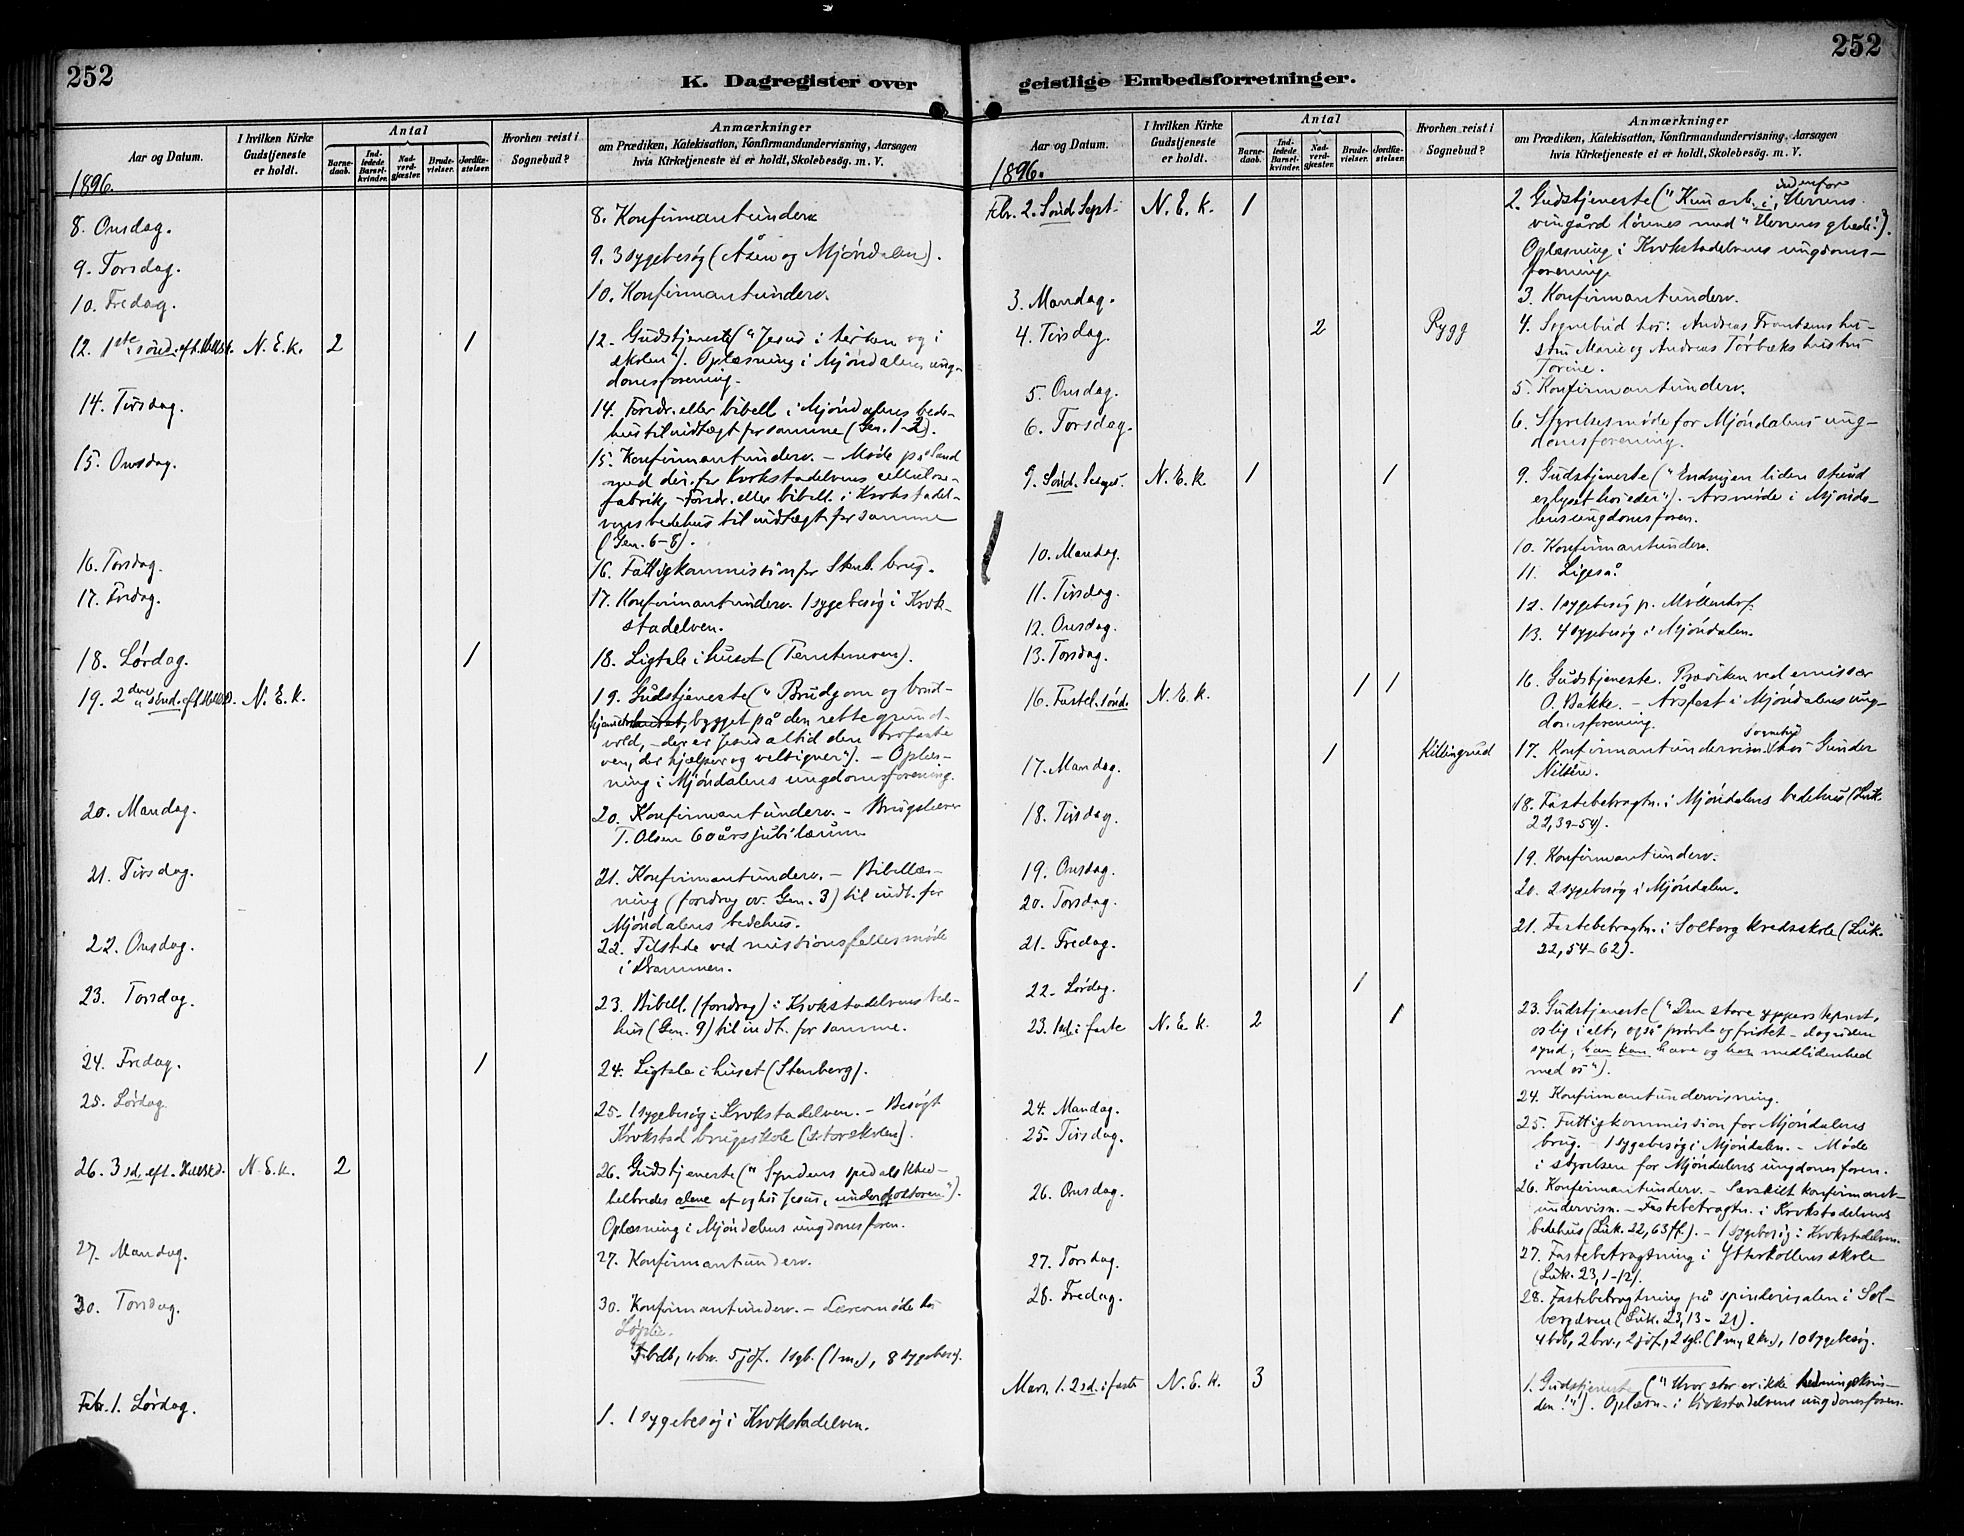 252
K. Dagregister over
Aar og Datum.
I hvilken Kirke
Gudstjeneste
er holdt.
Antal
Barne-
daab.
Ind-
ledede
Barsel-
kvinder.
Nad-
verd-
gjæster.
Brude-
vielser.
Jordfæ-
stelser.
Hvorhen reist i
Sognebud?
Anmærkninger
om Prædiken, Katekisation, Konfirmandundervisning, Aarsagen
hvis Kirketjeneste ei er holdt, Skolebesög. m. V.
1896.
8. Onsdag.
8. Konfirmantunderv.
9. Torsdag.
9. 3 sygebesøg (Åsen og Mjöndalen).
10. Fredag.
10. Konfirmantunderv.
12. 1ste sönd. eft. N. E. k. 2 1
12. Gudstjeneste ("Jesus i kirken og i
skolen"). Oplæsning i Mjöndalens ung-
domsforening.
14. Tirsdag.
14. Foredr. eller bibell. i Mjöndalens bede-
hus til indtægt for samme (Gen. 1-2).
15. Onsdag.
15. Konfirmantunderv. – Møde på Sand
med dir. for Krokstadelvens cellulose-
fabrik. – Foredr. eller bibell. i Krokstadel-
vens bedehus til indtægt for samme
(Gen. 6-8).
16. Torsdag.
16. Fattigkommission for Stenb. brug.
17. Fredag.
17. Konfirmantunderv. 1 sygebesøg i Krok-
stadelven.
18. Lördag. 1
18. Ligtale i huset
19. 2den sönd. eft. N. E. k.
19. Gudstjeneste ("Brudgom og brud-
bygget på den rette grund-
vold, – der er Jesus altid den trofaste
ven, der hjælper og velsigner"). – Oplæs-
ning i Mjöndalens ungdomsforening.
20. Mandag.
20. Konfirmantunderv. –
T. Olsen 60 års jubilæum
21. Tirsdag.
21. Konfirmantunderv. – Bibellæs-
ning (foredrag ov. Gen. 3) til indt. for
Mjöndalens bedehus.
22. Onsdag.
22. Tilstede ved missionsfællesmöde
i Drammen.
23. Torsdag.
23. Bibell. (foredrag) i Krokstadelvens bede-
hus (Gen. 9) til indt. for samme.
24. Fredag. 1
24. Ligtale i huset (Stenberg).
25. Lördag
25. 1 sygebesøg i Krokstadelven. – Besøgt
Krokstad brugsskole (storskolen).
26. 3 sd. eft. N. E. k. 2
26. Gudstjeneste ("Syndens spedalskhed
helbredes alene af og hos Jesus, underdoktoren").
Oplæsning i Mjöndalens ungdomsforen.
27. Mandag.
27. Konfirmantunderv.
30. Torsdag.
30. Konfirmantunderv. – Læremöde
5 jdf. 1 sgb. (1 m.), 8 sygebesøg.
Febr. 1. Lördag.
1. 1 sygebesøg i Krokstadelven.
252
geistlige Embedsforretninger.
Aar og Datum.
I hvilken Kirke
Gudstjeneste
er holdt.
Antal
Barne-
daab.
Ind-
ledede
Barsel-
kvinder.
Nad-
verd-
gjæster.
Brude-
vielser.
Jordfæ-
stelser.
Hvorhen reist i
Sognebud?
Anmærkninger
om Prædiken, Katekisation, Konfirmandundervisning, Aarsagen
hvis Kirketjeneste ei er holdt, Skolebesög. m. V.
1896.
Febr. 2. Sönd. Sept. N. E. k. 1
2. Gudstjeneste ("Kun arb. i, indenfor Herrens
vingård lönnes med "Herrens glæde").
Oplæsning i Krokstadelvens ungdoms-
forening.
3. Mandag.
3. Konfirmantunderv.
4. Tirsdag. 2 Rygg
4. Sognebud hos: Andreas Frantsens hu-
stru Marie og Andreas Torbæks hustru
Torine.
5. Onsdag.
5. Konfirmantunderv.
6. Torsdag.
6. Styrelsesmöde for Mjöndalens ung-
domsforening.
9. Sönd. N. E. k. 1 1
9. Gudstjeneste ("Endnu en liden stund
er lyset hos eder"). – Årsmöde i
ungdomsforen.
10. Mandag.
10. Konfirmantunderv.
11. Tirsdag.
11. Ligeså.
12. Onsdag.
12. 1 sygebesøg p. Möllenhof.
13. Torsdag.
13. 4 sygebesøg i Mjöndalen.
16. Fastel. sönd. N. E. k. 1 1
16. Gudstjeneste. Prædiken ved emissær
O. Bakke. – Årsfest i Mjöndalens ung-
domsforening
17. Mandag. 1 Killingrud
17. Konfirmantundervisn. Sognebud hos Gunder
Nilsen.
18. Tirsdag.
18. Fastebetragtn. i Mjöndalens bedehus (Luk.
22,39-54).
19. Onsdag.
19. Konfirmantunderv.
20. Torsdag.
20. 2 sygebesøg i Mjöndalen.
21. Fredag.
21. Fastebetragtn. i Solberg kredsskole (Luk.
22,54-62).
22. Lördag. 1
23. 1 sd. i faste N. E. k. 2 1
23. Gudstjeneste ("Den store ypperstepræst,
os lig i alt, også prövet og fristet – dog uden
synd; han kan have og har medlidenhed
med os").
24. Mandag.
24. Konfirmantundervisning.
25. Tirsdag.
25. Fattigkommission for Mjöndalens
brug. – 1 sygebesøg i Mjöndalen. – Möde
i styrelsen for Mjöndalens ungdomsforen.
26. Onsdag.
26. Konfirmantunderv. – Særskilt konfirmant-
undervisn. – Fastebetragtn. i Krokstadelvens
bedehus (Luk. 22,63 ff.). – 1 sygebesøg i Krokstadelven.
27. Torsdag.
27. Fastebetragtning i Ytterkollens skole
(Luk. 23,1-12).
28. Fredag.
28. Fastebetragtning på spinderisalen i Sol-
bergelven (Luk. 23,13-21).
4 bdb, 2 brv., 2 jdf., 2 sgb. (1 m., 2 kv.), 10 sygebesøg.
Mars. 1. 2 sd. i faste N. E. k. 3
1. Gudstjeneste ("Hvor stor er ikke hedningekvin-
den!"). Oplæsn. i Krokstadelvens ungdomsforen.